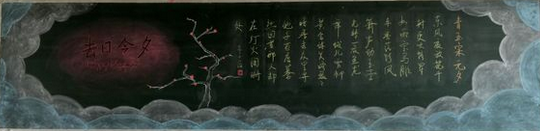 青玉案 元夕
东风夜放花千
树更吹落星
如雨宝马雕
车香满路凤
箫声动玉壶
光转一夜鱼龙
舞蛾儿雪柳
黄金缕笑语
盈盈暗香去
众里寻
他千百度蓦
然回首那人却
在灯火阑珊
处
去日今夕